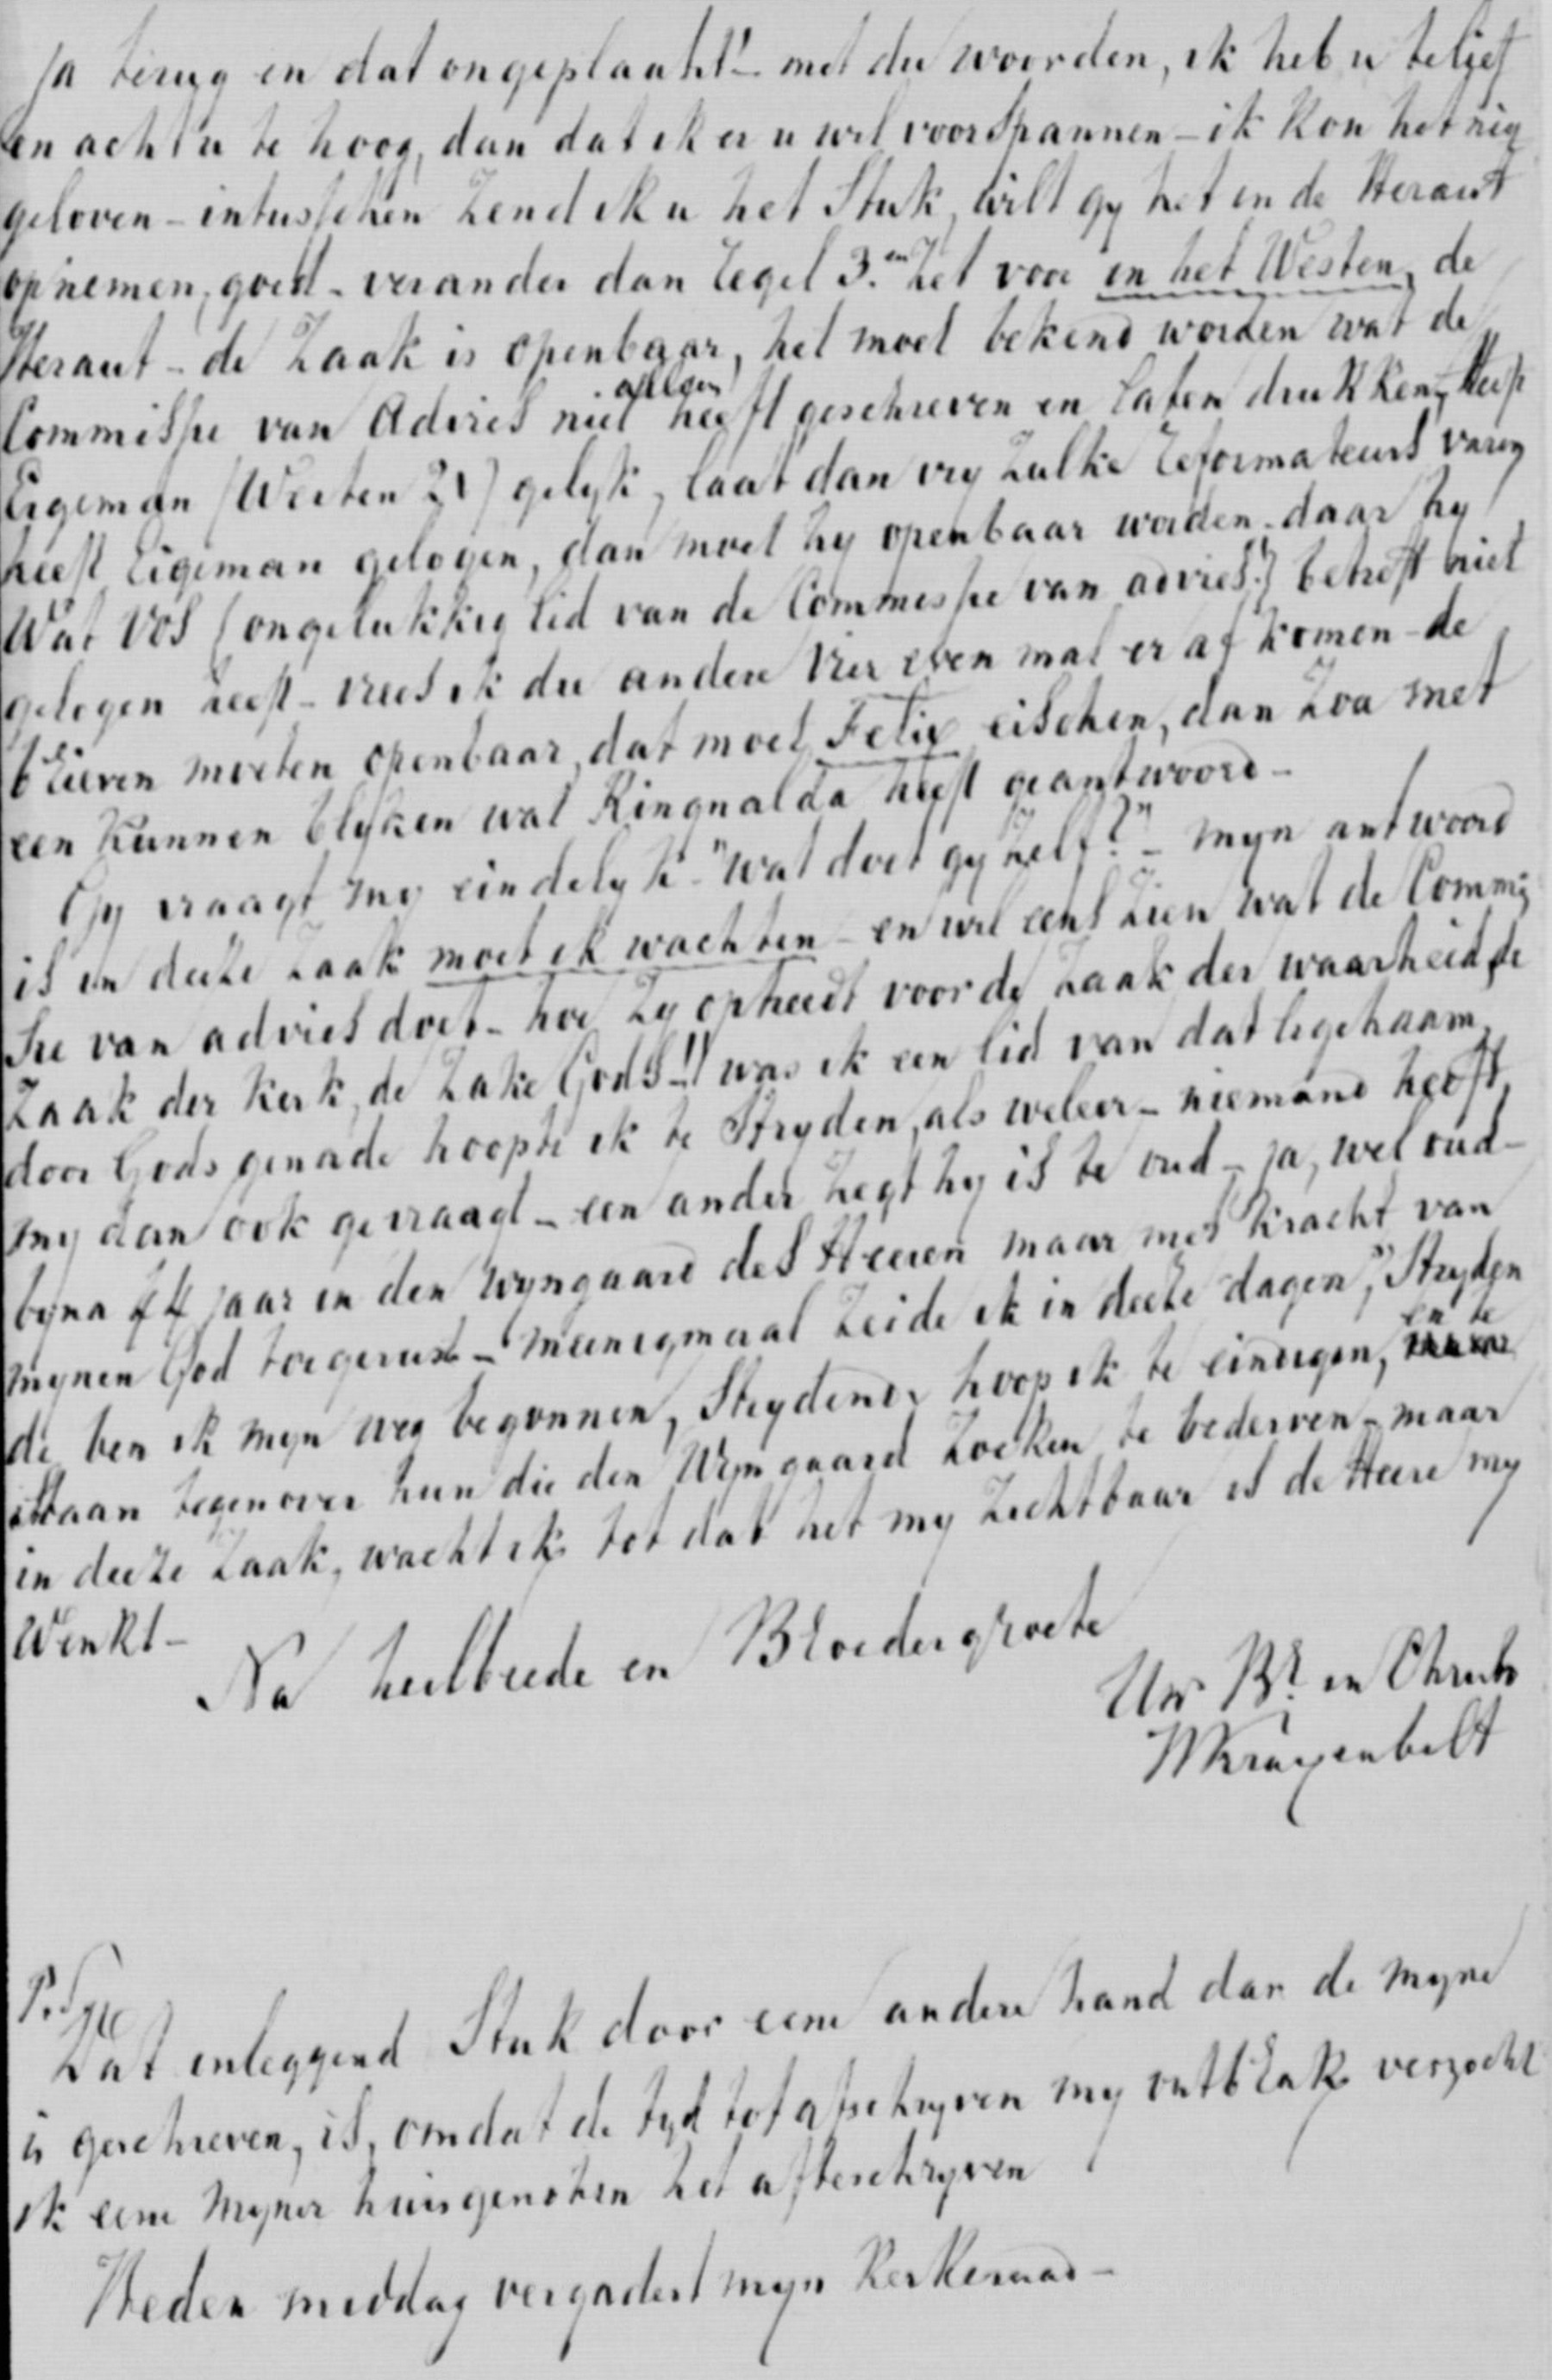 ja terug en dat ongeplaatst!- met die woorden, ik heb u te lief
en acht u te hoog, dan dat ik er u wil voor Spannen - ik kon het nie
geloven - intusschen Zend ik u het Stuk, wilt gy het in de Heraut
opnemen, goed - verander dan regel 3. en Zet voor in het Westen, de
Heraut - de Zaak is openbaar, het moet bekend worden wat de
Commissie van Advies niet alleen heeft geschreven en laten drukken, Heeft
Eigeman (Westen 21) gelyk, laat dan vry Zulke reformateurs varen
heeft Eigeman gelogen, dan moet hy openbaar worden - daar hy
Wat Vos (ongelukkig lid van de Commissie van advies!) betreft niet
gelogen heeft - vrees ik die andere vier even mal er af komen - de
brieven moeten openbaar, dat moet Felix eischen, dan Zoa met
een kunnen blyken wat Ringnalda heeft geantwoord -
Gy vraagt my eindelyk - "wat doet gy Zelf?" - myn antwoord
is in deeze Zaak moet ik wachten - en wil eens Zien wat de Commis
sie van advies doet - hoe Zy optreedt voor de Zaak der waarheid, de
Zaak der kerk, de Zake Gods -!! was ik een lid van dat ligchaam,
door Gods genade hoopte ik te Stryden, als weleer - niemand heeft
my dan ook gevraagd - een ander Zegt hy is te oud - ja, wel oud -
byna 44 jaar in den wyngaard des Heeren maar met kracht van
mynen God toegerust - meenigmaal Zeide ik in deeze dagen, "Stryden
de ben ik myn weg begonnen, Strydend hoop ik te eindigen, en te
staan tegenover hen die den Wyngaard Zoeken te bederven - maar
in deeze Zaak, wacht ik tot dat het my Zichtbaar is de Heere my
Wenkt -
Na heilbede en Broedergroete
Uw Br. in Christo
WKrayenbelt
P.S.
Dat inleggend Stuk door eene andere hand dan de myne
is geschreven, is, omdat de tyd tot afschryven my ontbrak verzocht
ik eene myner huisgenoten het afteschryven
Heden middag vergadert myn Kerkeraad -